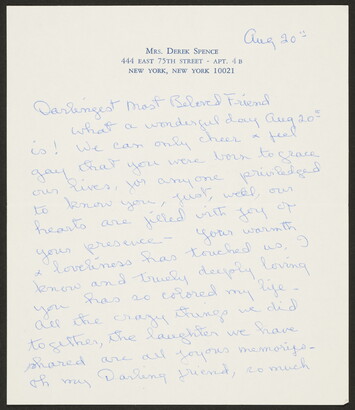 Aug 20th
MRS. DEREK SPENCE
444 EAST 75TH STREET - APT. 4B
NEW YORK, NEW YORK 10021
Darlingest Most Beloved Friend
What a wonderful day Aug 20th
is! We can only cheer & feel
gay that you were born to grace
our lives, for anyone priviledged
to know you, just, well, our
hearts are filled with joy of
your presence - Your warmth
& loveliness has touched us, I
know and truely deeply loving
you has so colored my life -
All the crazy things we did
together, the laughter we have
shared are all joyous memories -
Oh my Darling friend, so much